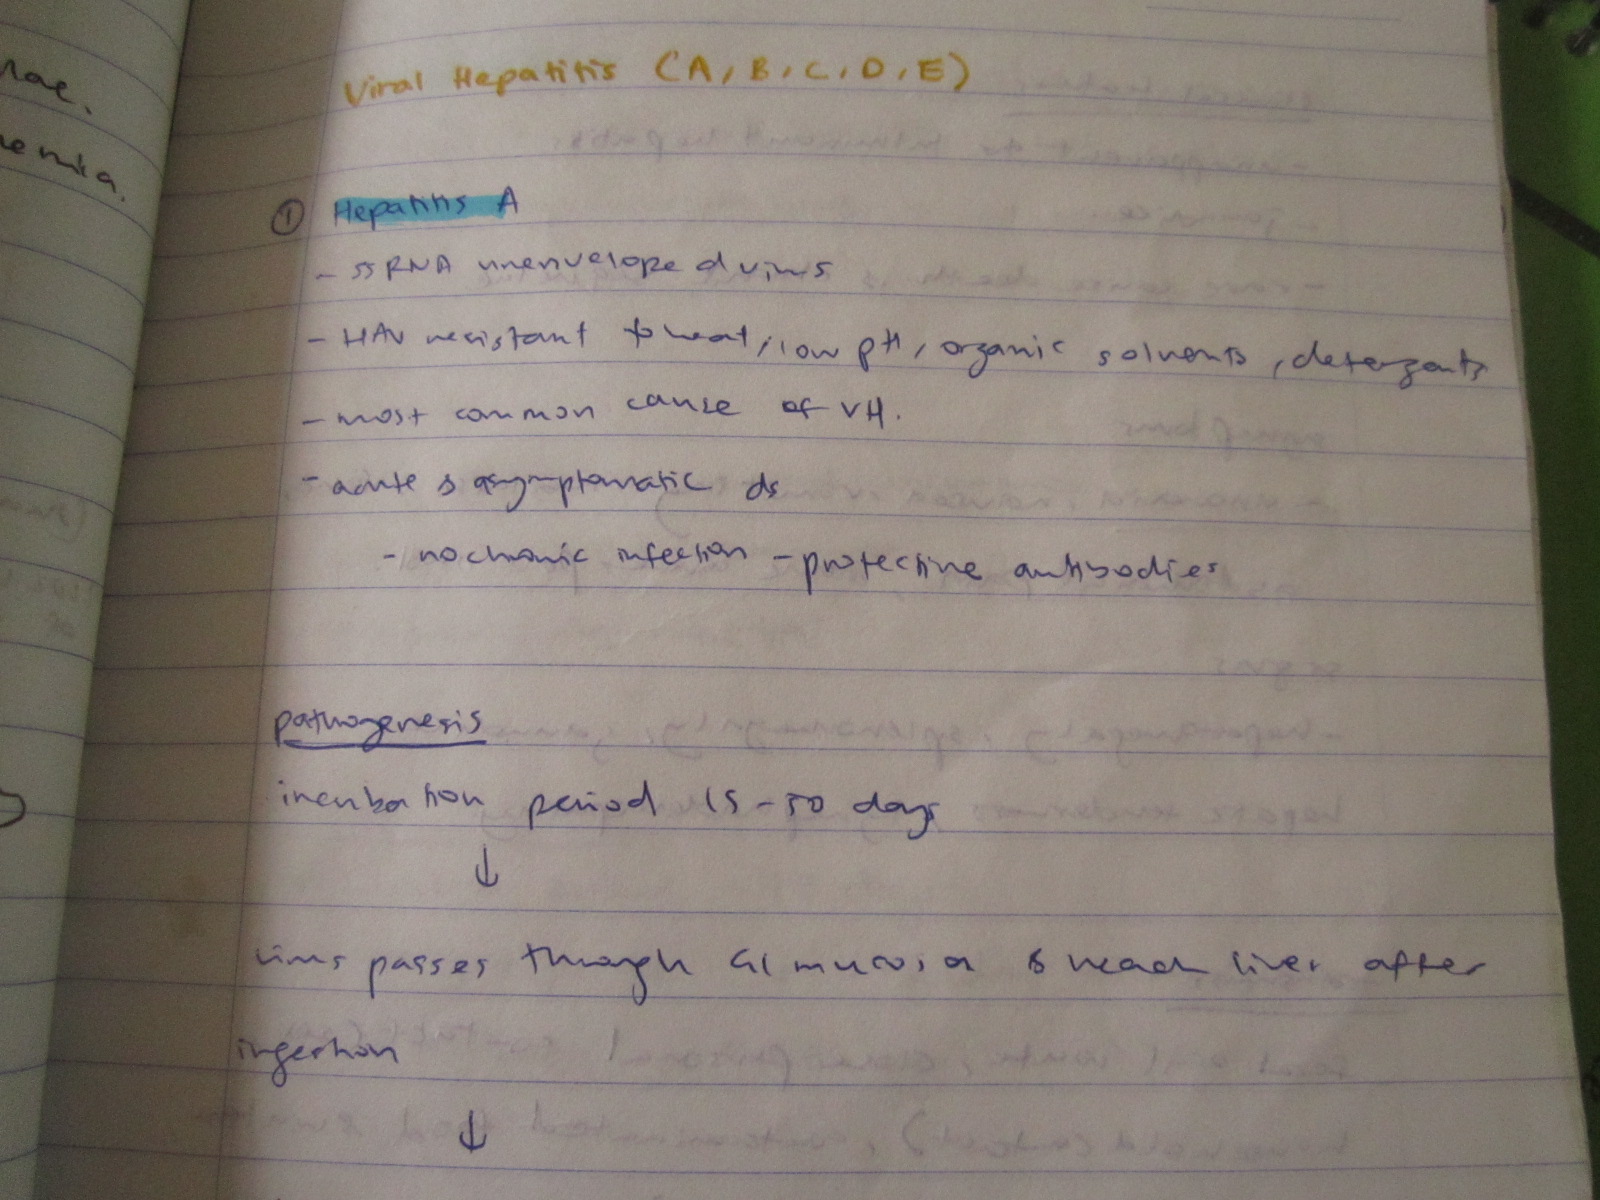 nae.
nemia.
Viral Hepatitis (A, B, C, D, E)
① Hepatitis A
- ssRNA unenveloped virus
- HAV resistant to heat, low pH, organic solvents, detergents
- most common cause of VH.
- acute & asymptomatic ds
- no chronic infection - protective antibodies
pathogenesis
incubation period 15-50 days
↓
virus passes through GI mucosa & reach liver after
ingestion
↓